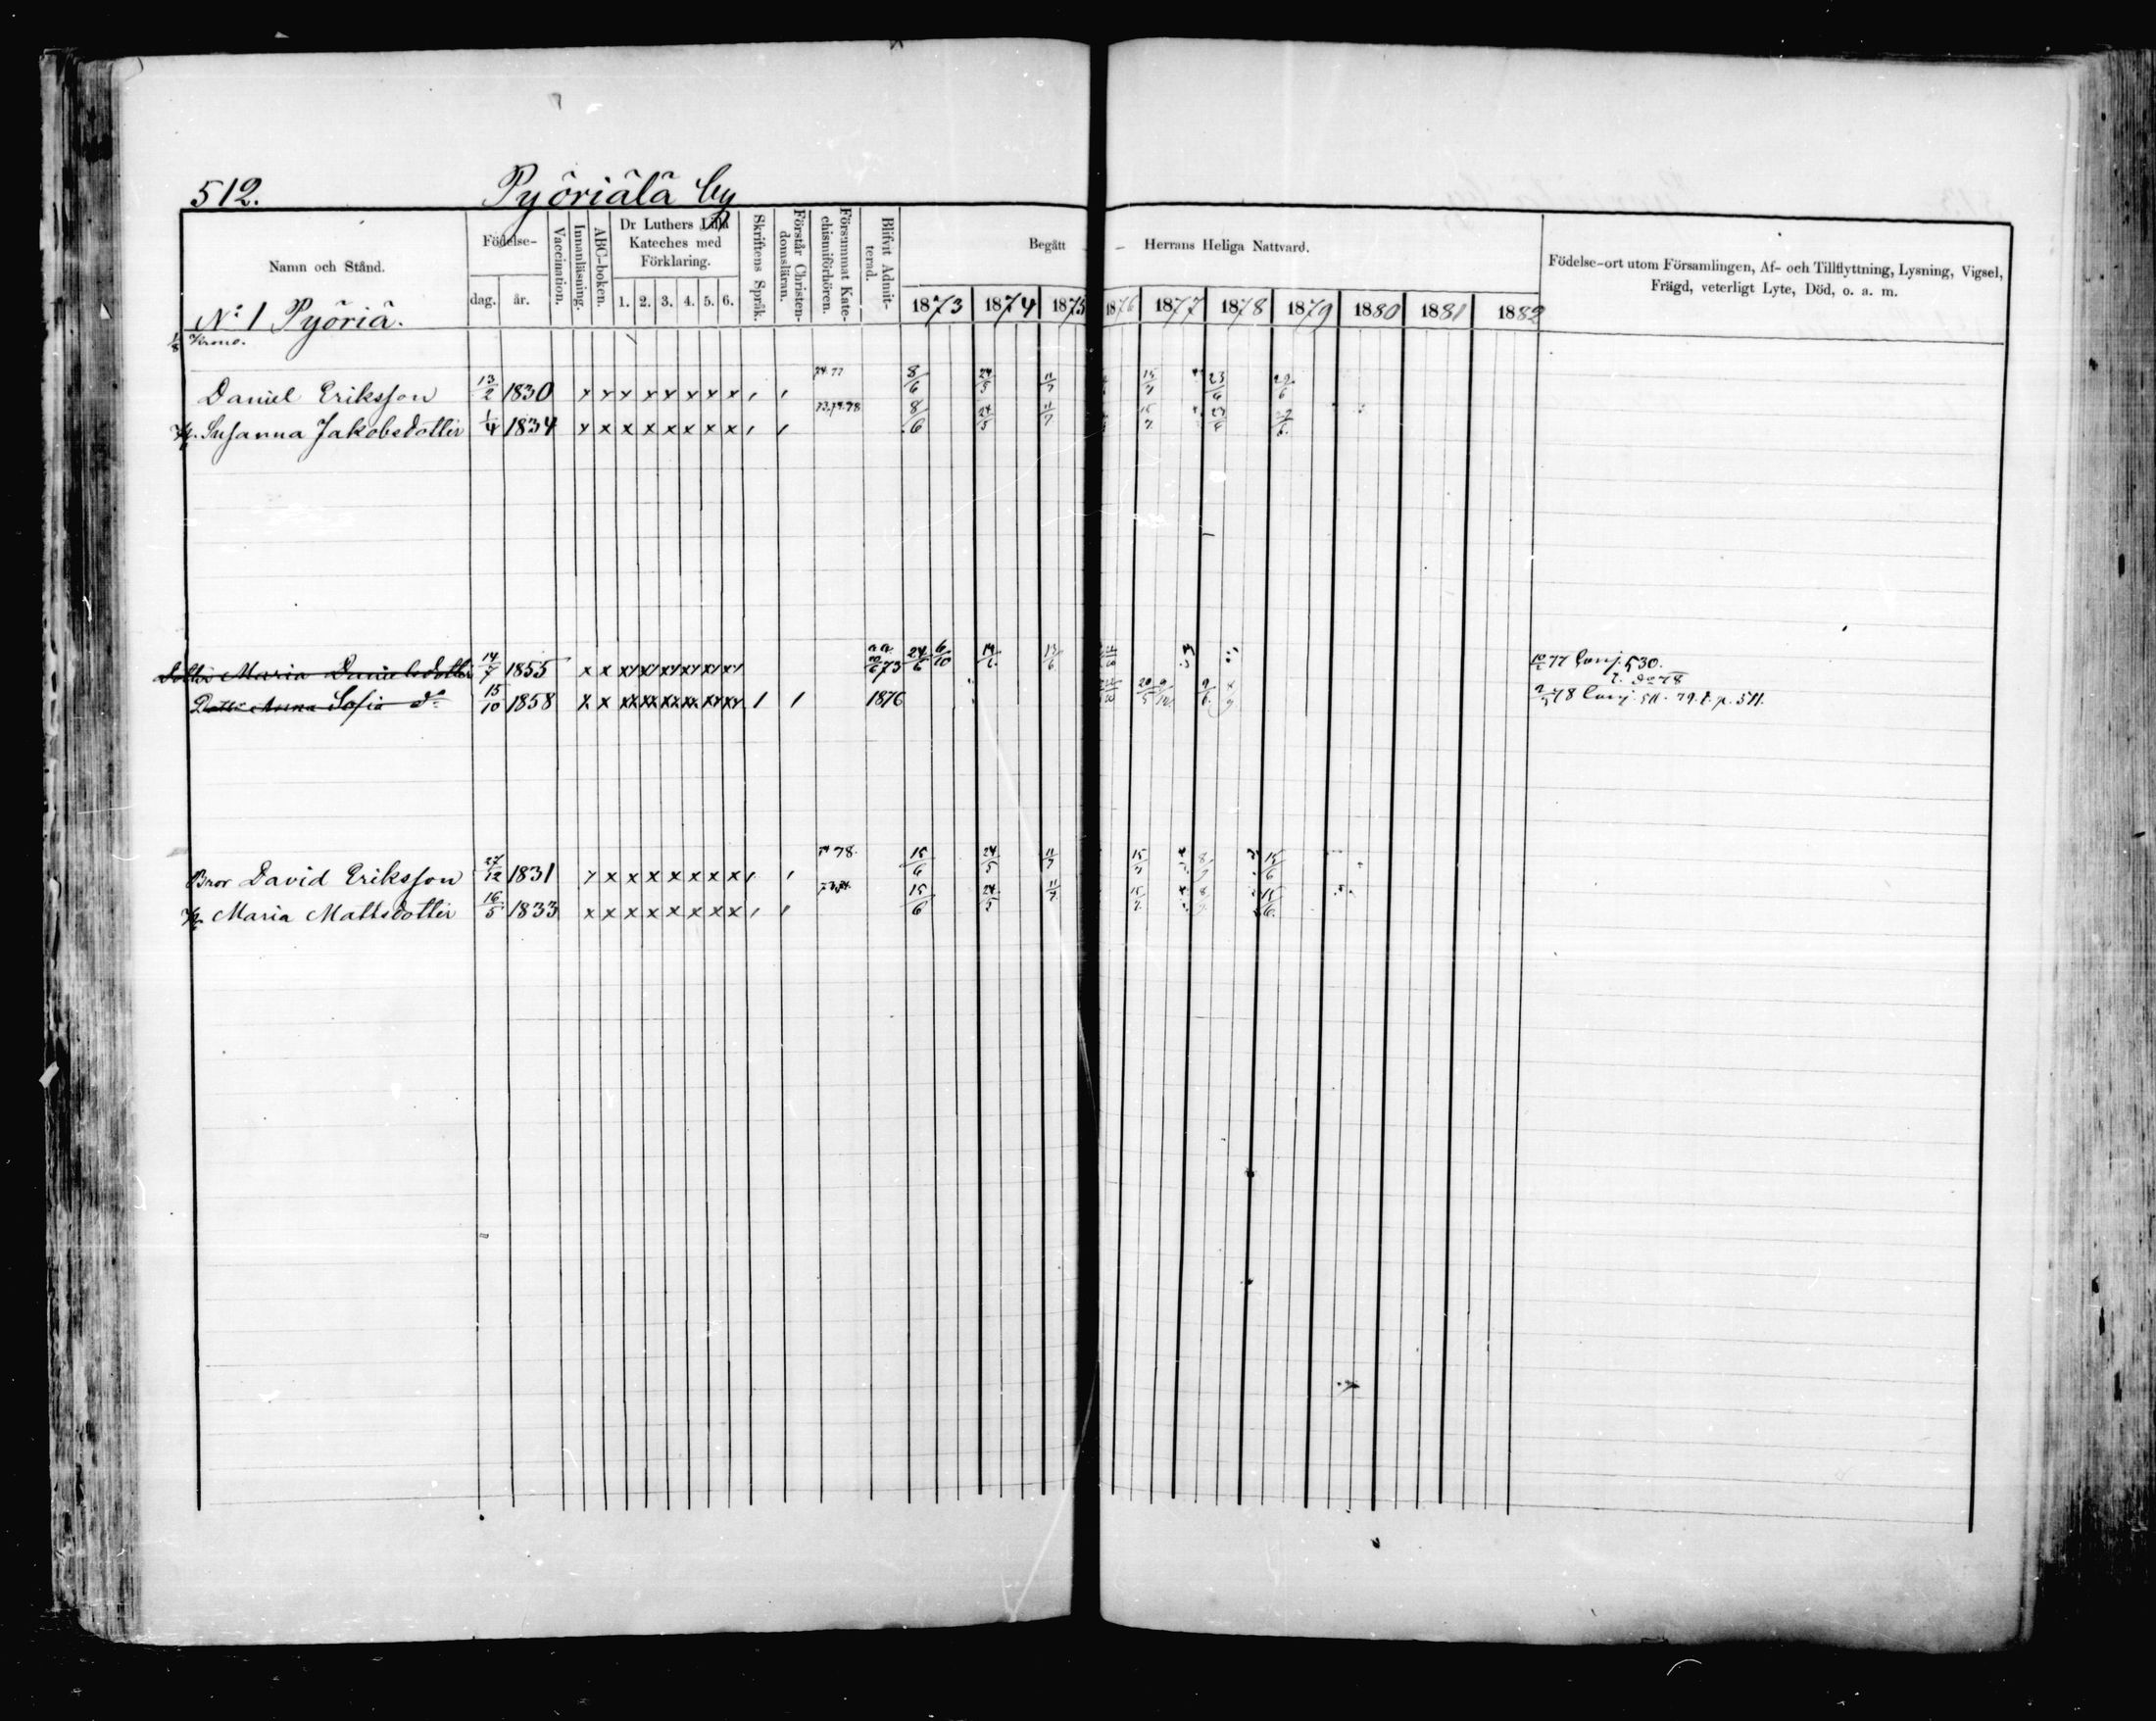 512. Pyöriälä by
Namn och Stånd. Födelse- dag. år. Vaccination. Innanläsning. ABC-boken. Dr Luthers Lilla Kateches med Förklaring. 1. 2. 3. 4. 5. 6. Skriftens Språk. Förstår Christendomsläran. Försummat Katechismiförhören. Blifvit Admitterad. Begått Herrans Heliga Nattvard. Födelse-ort utom Församlingen, Af- och Tillflyttning, Lysning, Vigsel, Frägd, veterligt Lyte, Död, o. a. m.
1873 1874 1875 1876 1877 1878 1879 1880 1881 1882
No 1 Pyöriä.
Krono.
Daniel Eriksson 13/2 1830 x x x x x x x x 8/6 24/5 11/7 15/7 23/6 29/6
Susanna Jakobsdotter 1/4 1834 x x x x x x x x 73.74.78 8/6 24/5 11/7 15/7 23/6
Dotter Maria Danielsdotter 14/7 1855 73 24/6 6/10 14/6 13/6 77 Conj. 530.
do 78
Dotter Anna Sofia do 15/10 1858 1876 78 Conj. 511. 79. t. p. 511.
Bror David Eriksson 27/12 1831 x x x x x x x 78. 15/6 24/5 11/7 15/7 15/6
Maria Mattsdotter 16/5 1833 x x x x x x x x 15/6 24/5 11/7 15/7 15/6